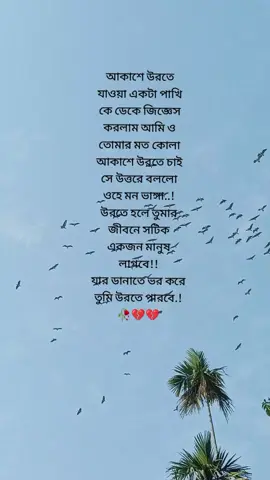 আকাশে উরতে
যাওয়া একটা পাখি
কে ডেকে জিজ্ঞেস
করলাম আমি ও
তোমার মত কোলা
আকাশে উরতে চাই
সে উত্তরে বললো
ওহে মন ভাঙ্গা..!
উরতে হলে তুমার
জীবনে সটিক
একজন মানুষ
লাগবে!!
যার ডানাতে ভর করে
তুমি উরতে পারবে.!
🥀💔💔